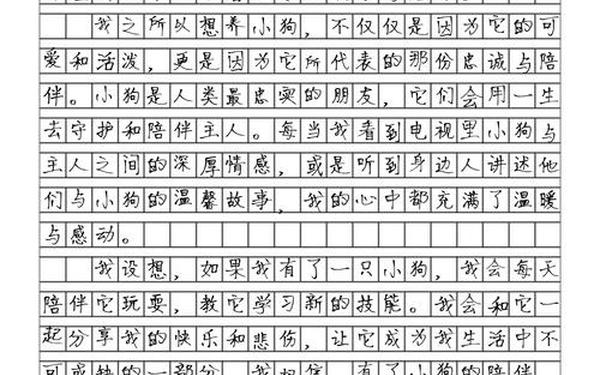 我之所以想养小狗，不仅仅是因为它的可
爱和活泼，更是因为它所代表的那份忠诚与陪
伴。小狗是人类最忠实的朋友，它们会用一生
去守护和陪伴主人。每当我看到电视里小狗与
主人之间的深厚情感，或是听到身边人讲述他
们与小狗的温馨故事，我的心中都充满了温暖
与感动。
我设想，如果我有了一只小狗，我会每天
陪伴它玩耍，教它学习新的技能。我会和它一
起分享我的快乐和悲伤，让它成为我生活中不
可或缺的一部分。我相信，有了小狗的陪伴